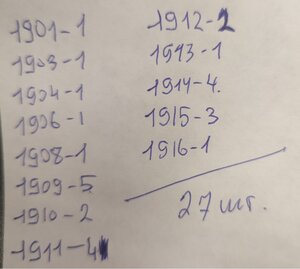 1901-1
1903-1
1904-1
1906-1
1908-1
1909-5
1910-2
1911-4
1912-2
1913-1
1914-4.
1915-3
1916-1
27 шт.